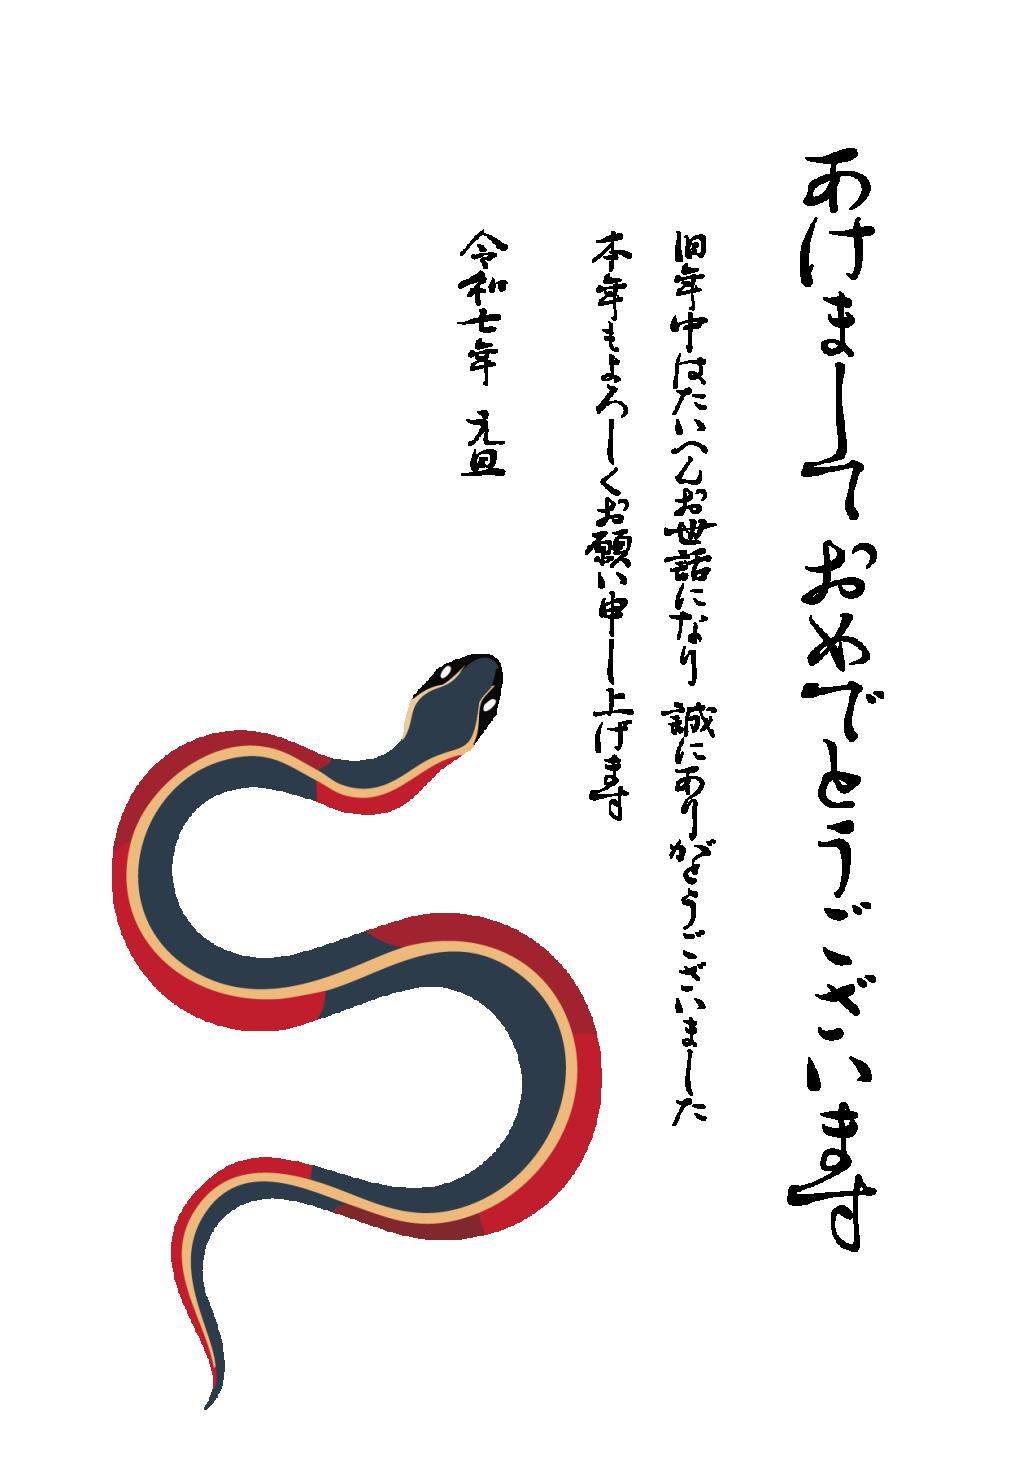 あけましておめでとうございます
旧年中はたいへんお世話になり 誠にありがとうございました
本年もよろしくお願い申し上げます
令和七年 元旦